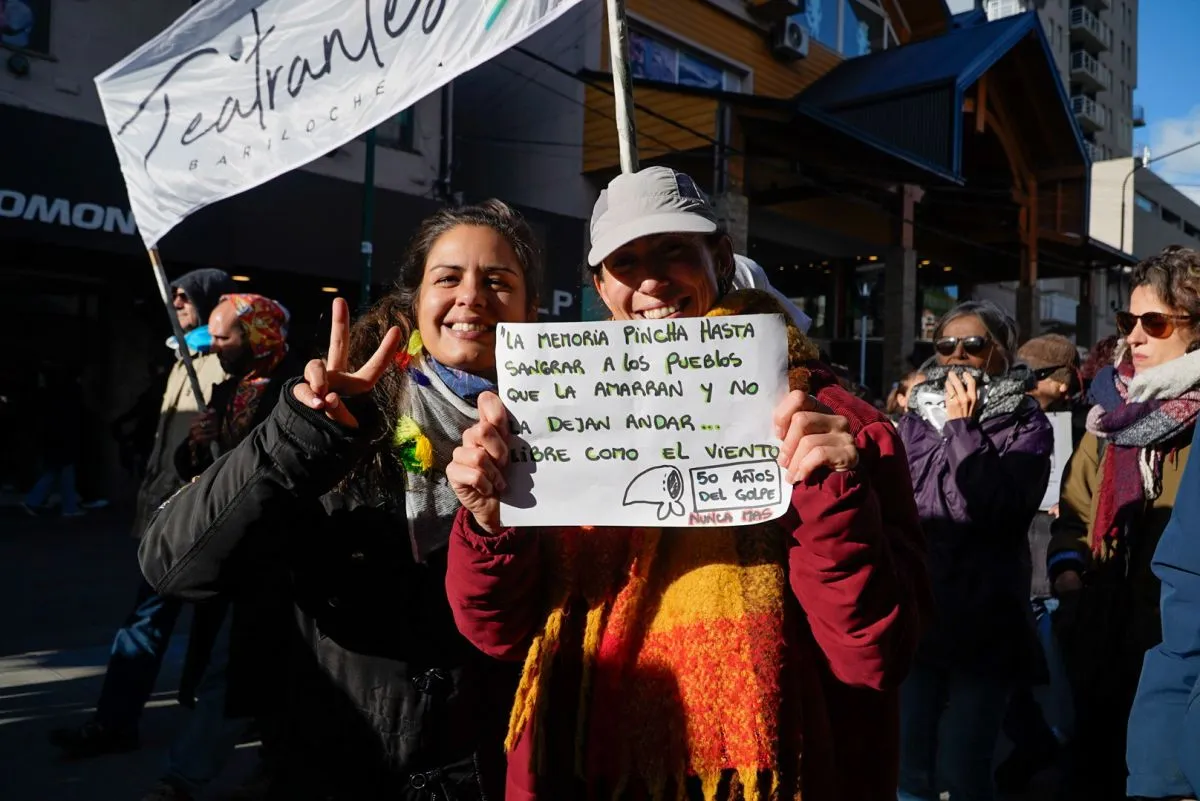 Teatrantes
BARILOCHE
OMON
P
"LA MEMORIA PINCHA HASTA
SANGRAR A LOS PUEBLOS
QUE LA AMARRAN Y NO
LA DEJAN ANDAR...
LIBRE COMO EL VIENTO
50 AÑOS
DEL GOLPE
NUNCA MAS